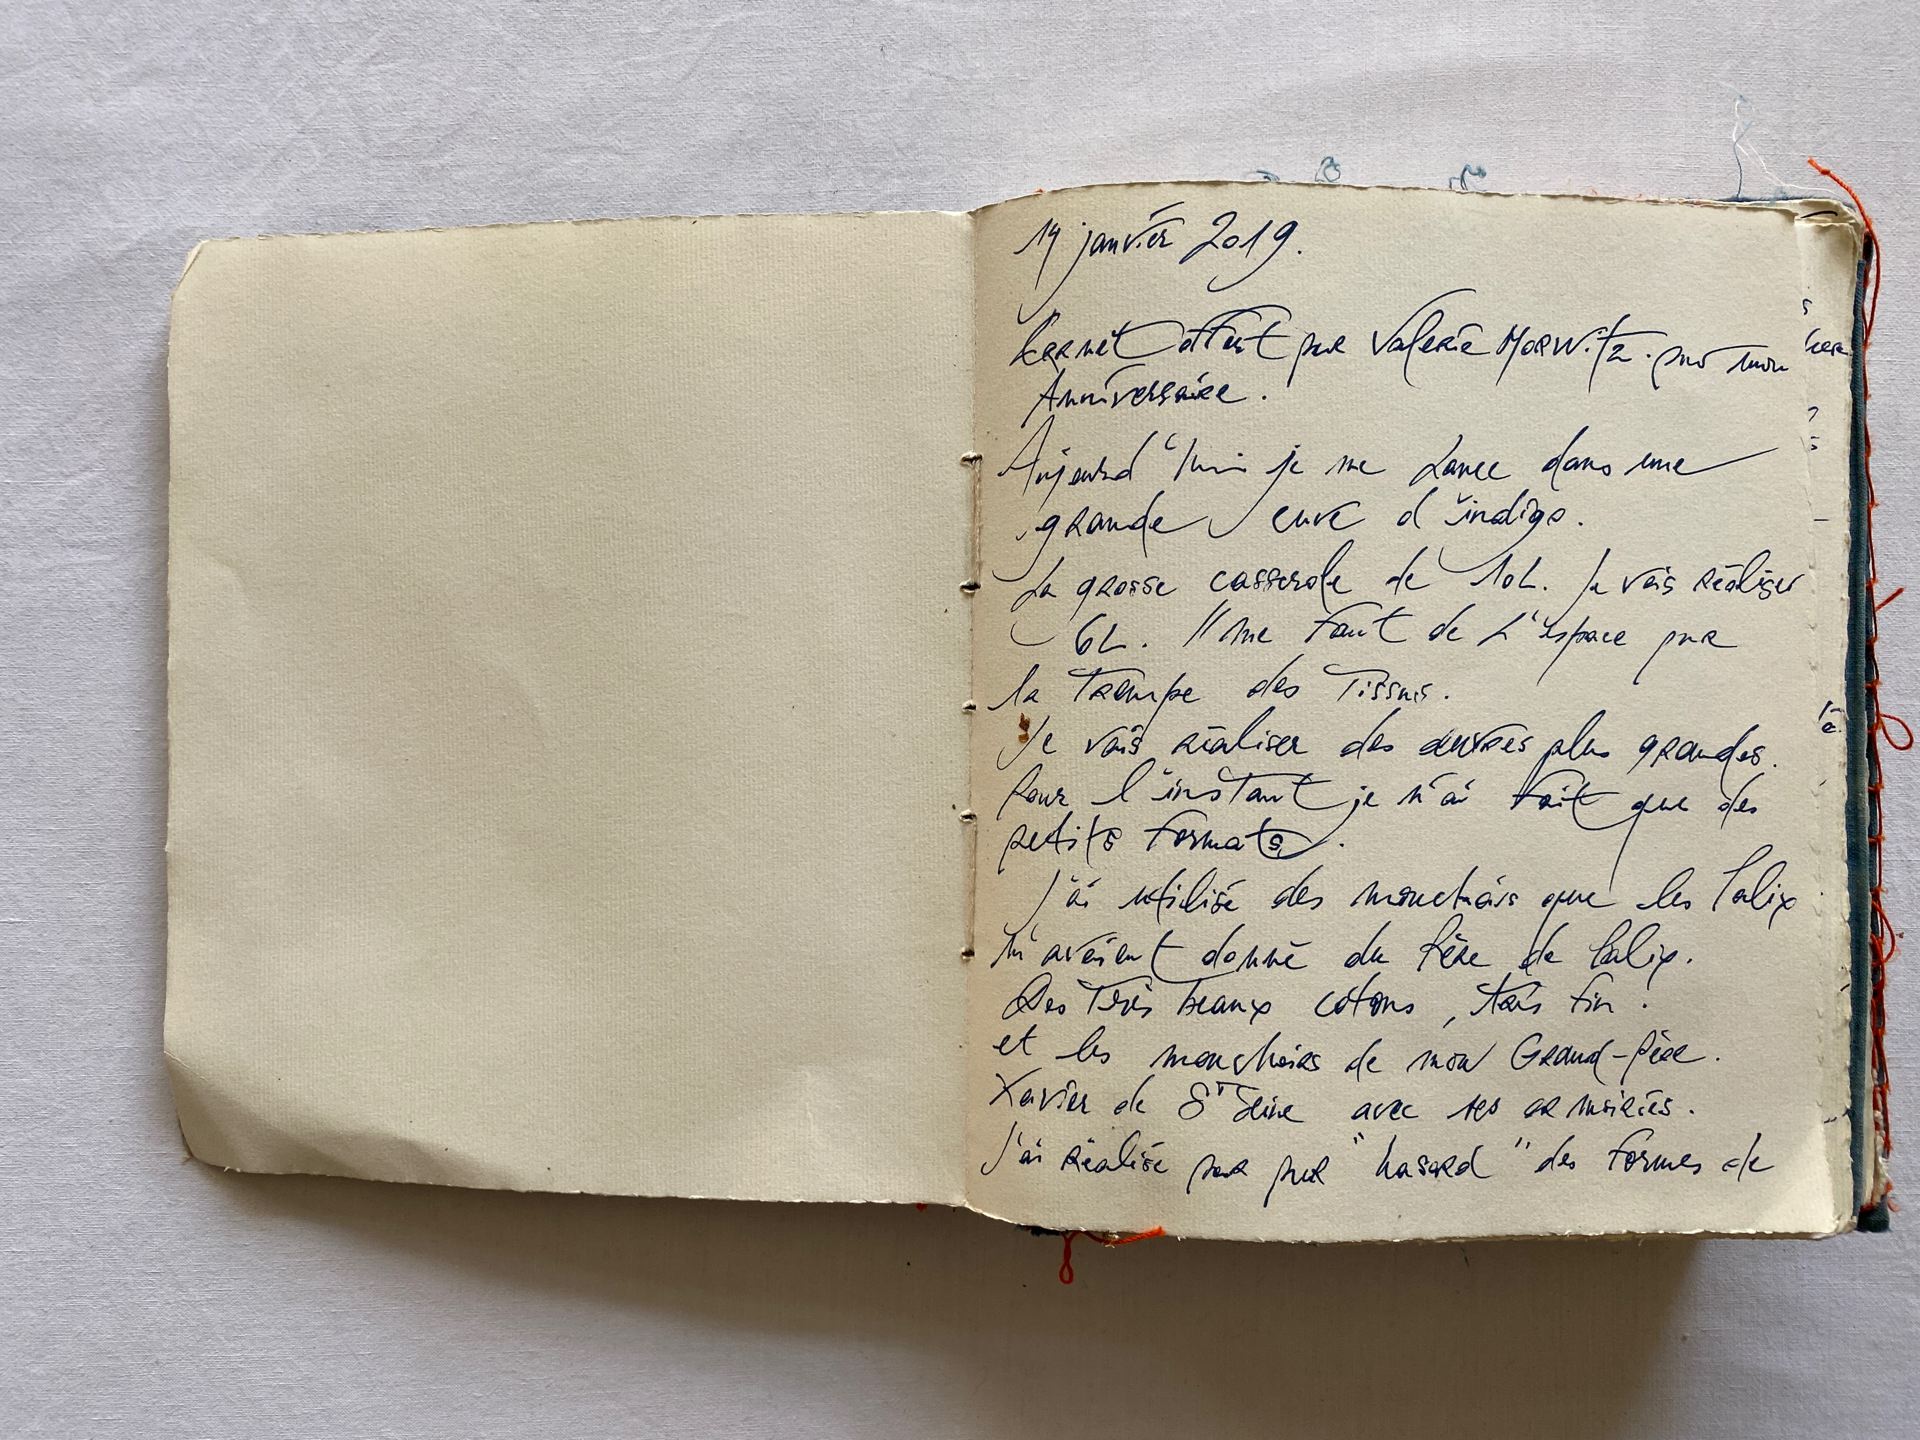 14 janvier 2019.
Carnet offert par Valérie Morwitz. pour mon
Anniversaire.
Aujourd'hui je me lance dans une
grande cuve d'indigo.
La grosse casserole de 10L. Je vais réaliser
6L. Il me faut de l'espace pour
la trempe des tissus.
Je vais réaliser des œuvres plus grandes.
Pour l'instant je n'ai fait que des
petits formats.
J'ai utilisé des mouchoirs que les
m'avaient donné du Père de
Des très beaux cotons, très fin.
et les mouchoirs de mon Grand-Père.
Xavier de St Seine avec ses armoiries.
J'ai réalisé par pur "hasard" des formes de